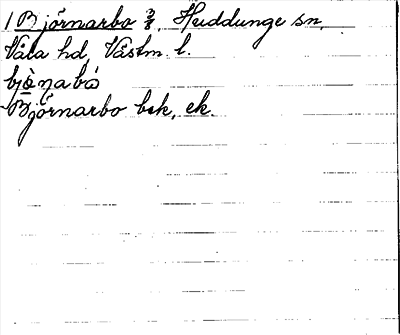 1 Björnarbo 2/3, Huddunge sn,
Våla hd, Västm. l.
Björnarbo bsk, ek.